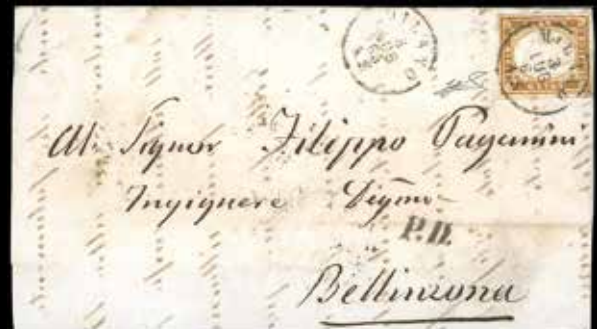 MILANO
MILANO
Al. Signor Filippo Paganini
Ingignere Degmo
P.D.
Bellinzona